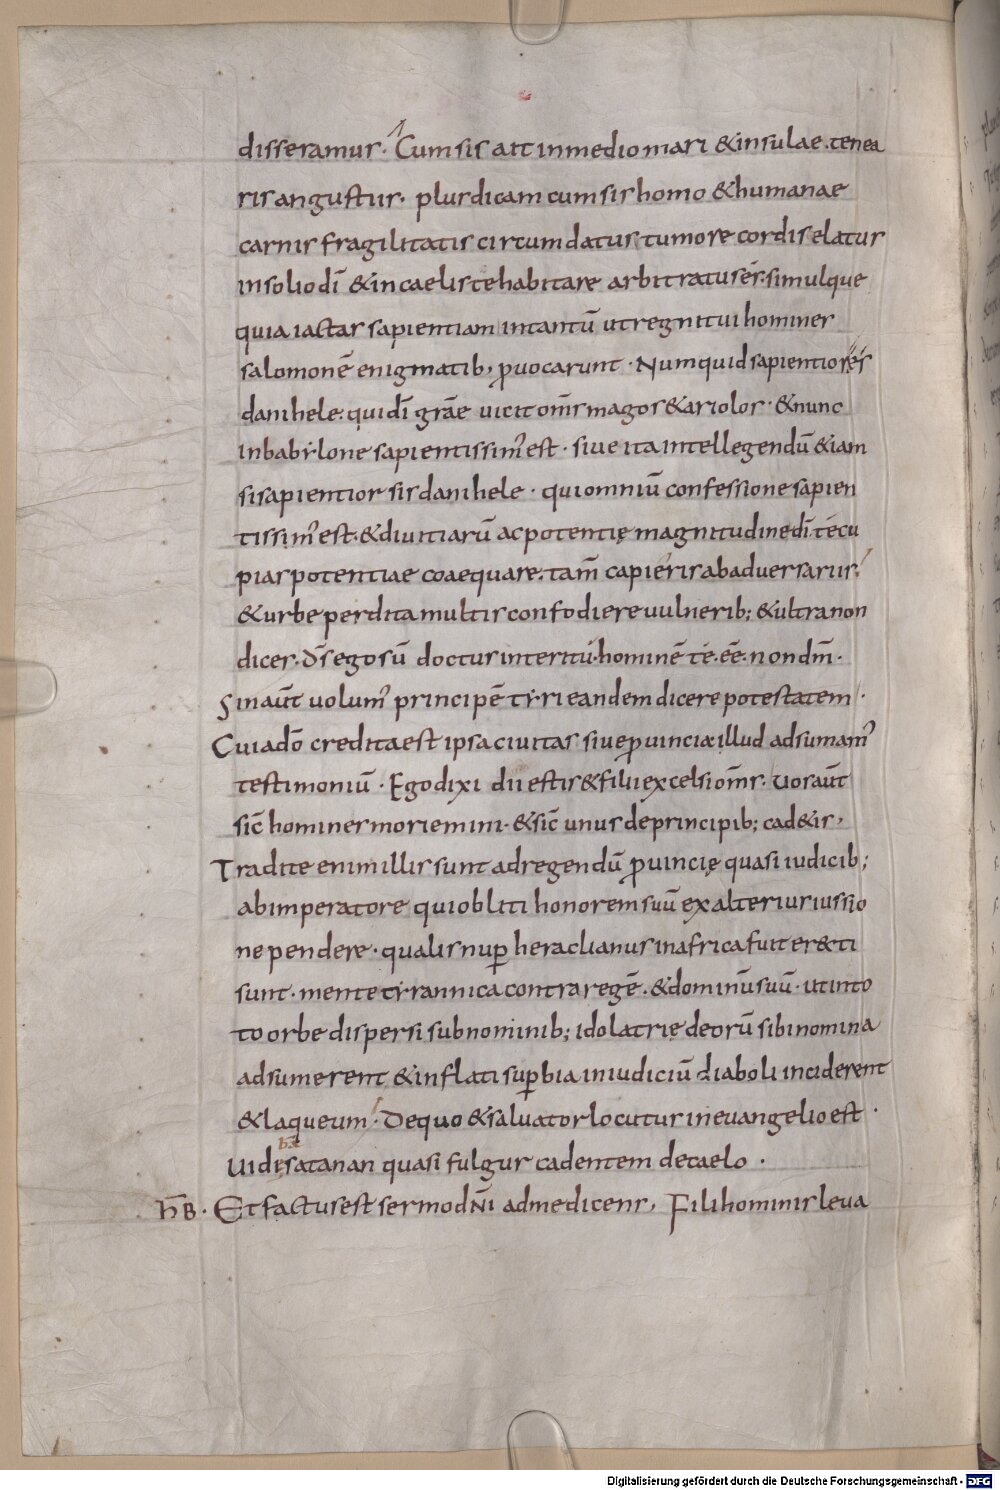 disseramus. Cum sis ait inmedio mari &insulae tenea
ris angustiis. plus dicam cum sis homo &humanae
carnis fragilitatis circumdatus tumore cordis elatus
insolio dī &incaelis te habitare arbitratus es. simulque
quia iactas sapientiam intantū ut regni tui homines
salomonē enigmatib; ꝓvocarunt. Numquid sapientiores
danihele. qui dī grāe uicit om̄s magos &ariolos. &nunc
inbabylone sapientissim' est. siue ita intellegendū &iam
si sapientior sis danihele. qui omniū confessione sapien
tissim' est. &divitiarū ac potentię magnitudine dī te cu
pias potentiae coaequare. tam̄ capieris ab adversariis.
&urbe perdita multis confodiere uulnerib; &ultra non
dices. d̄s ego sū doctus interitū. hominē te. eē. non dm̄.
Sin aūt uolum' principē tyri eandem dicere potestatem.
Cui ad̄o credita est ipsa civitas siue ꝓuincia illud adsumam'
testimoniū. Ego dixi dii estis &filii excelsi om̄s. Uos aūt
sic̄ homines moriemini. &sic̄ unus de principib; cad&is,
Tradite enim illis sunt ad regendū ꝓuincię quasi iudicib;
ab imperatore qui obliti honorem suū ex alterius iussio
ne pendere. qualis nuꝑ heraclianus in africa fuit er&ti
sunt. mente tyrannica contra regē. &dominū suū. ut in to
to orbe dispersi sub nominib; idolatrię deorū sibi nomina
adsumerent &inflati suꝑbia in iudiciū diaboli inciderent
&laqueum. De quo &salvator locutus in evangelio est.
Uidesatanan quasi fulgur cadentem de caelo.
h̄B. Et factus est sermo dn̄i ad me dicens, Fili hominis leva
Digitalisierung gefördert durch die Deutsche Forschungsgemeinschaft - DFG